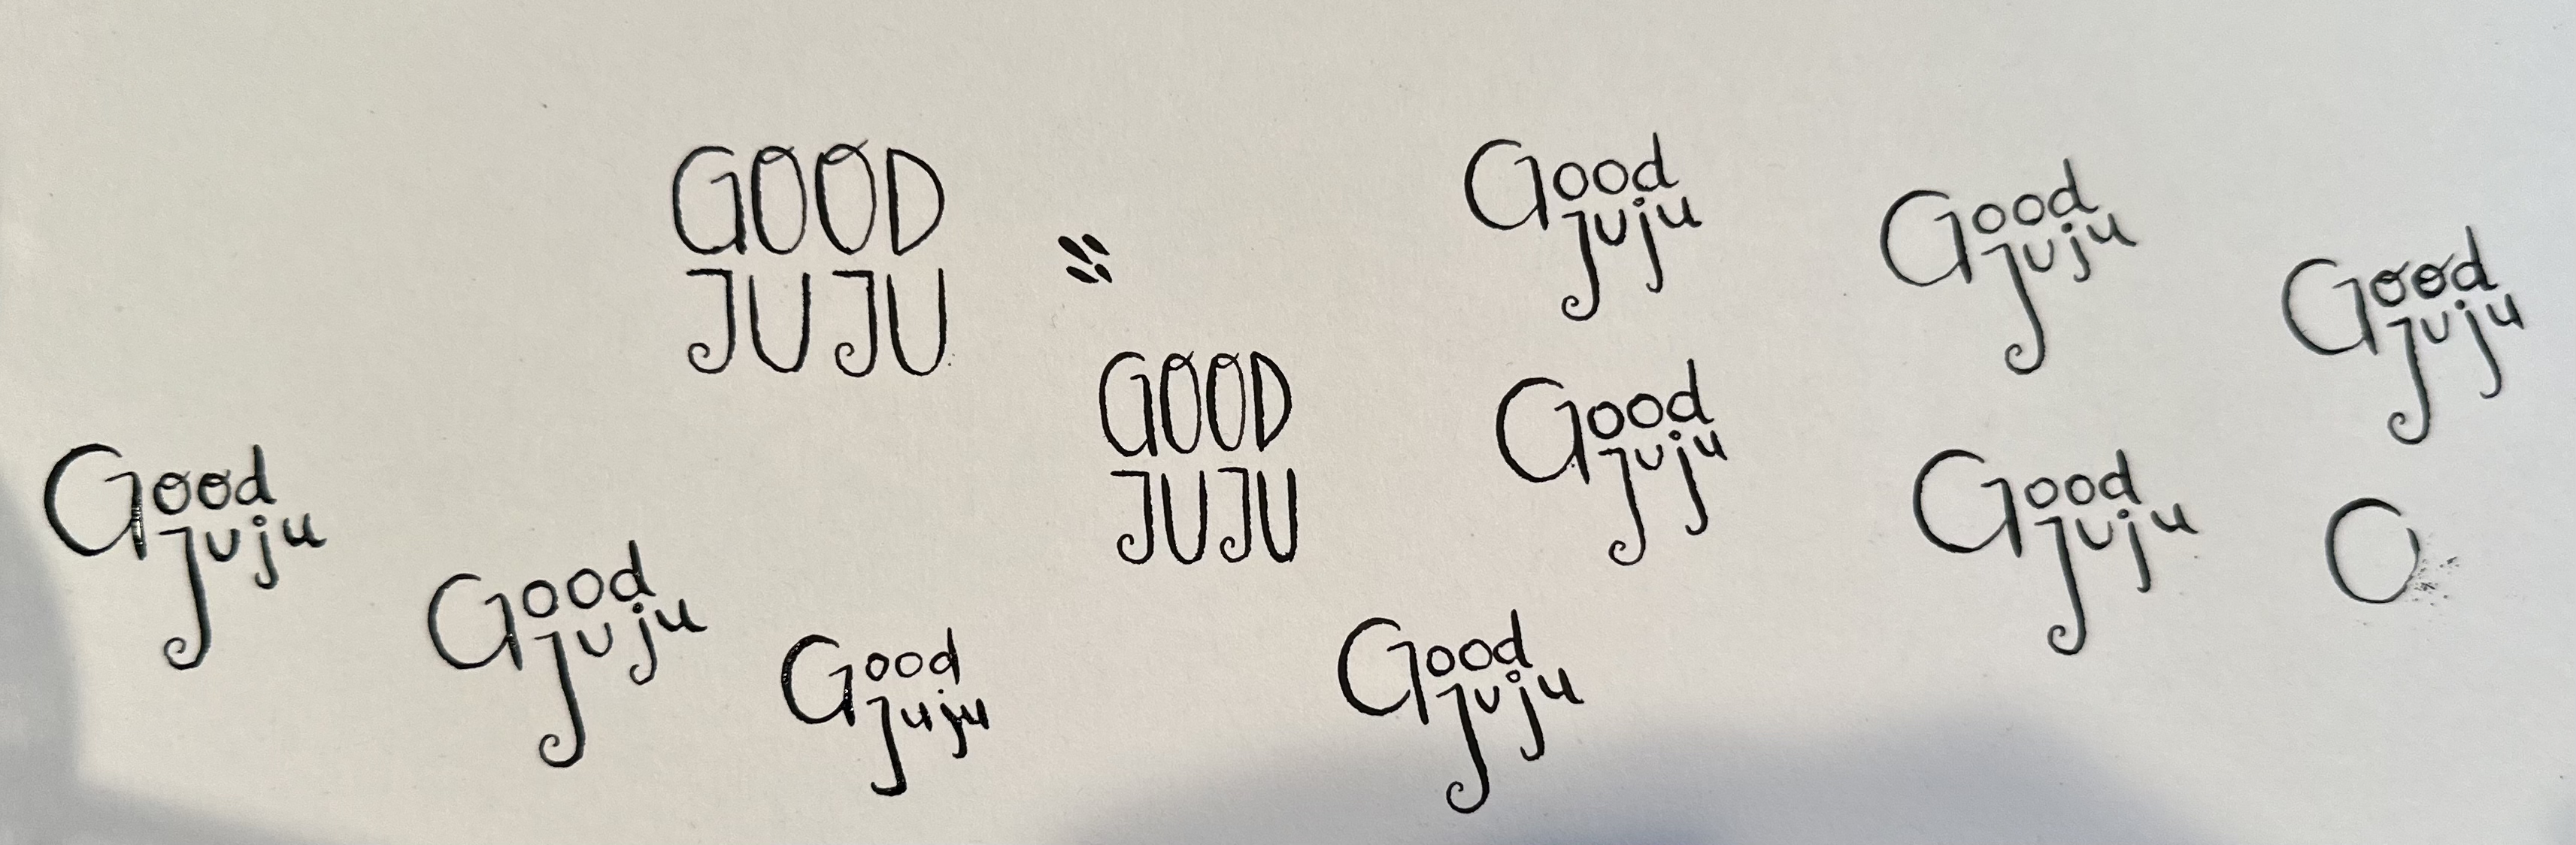 GOOD
JUJU
Good
Juju
Good
Juju
Good
Juju
GOOD
JUJU
Good
Juju
Good
Juju
Good
Juju
Good
Juju
Good
Juju
Good
Juju